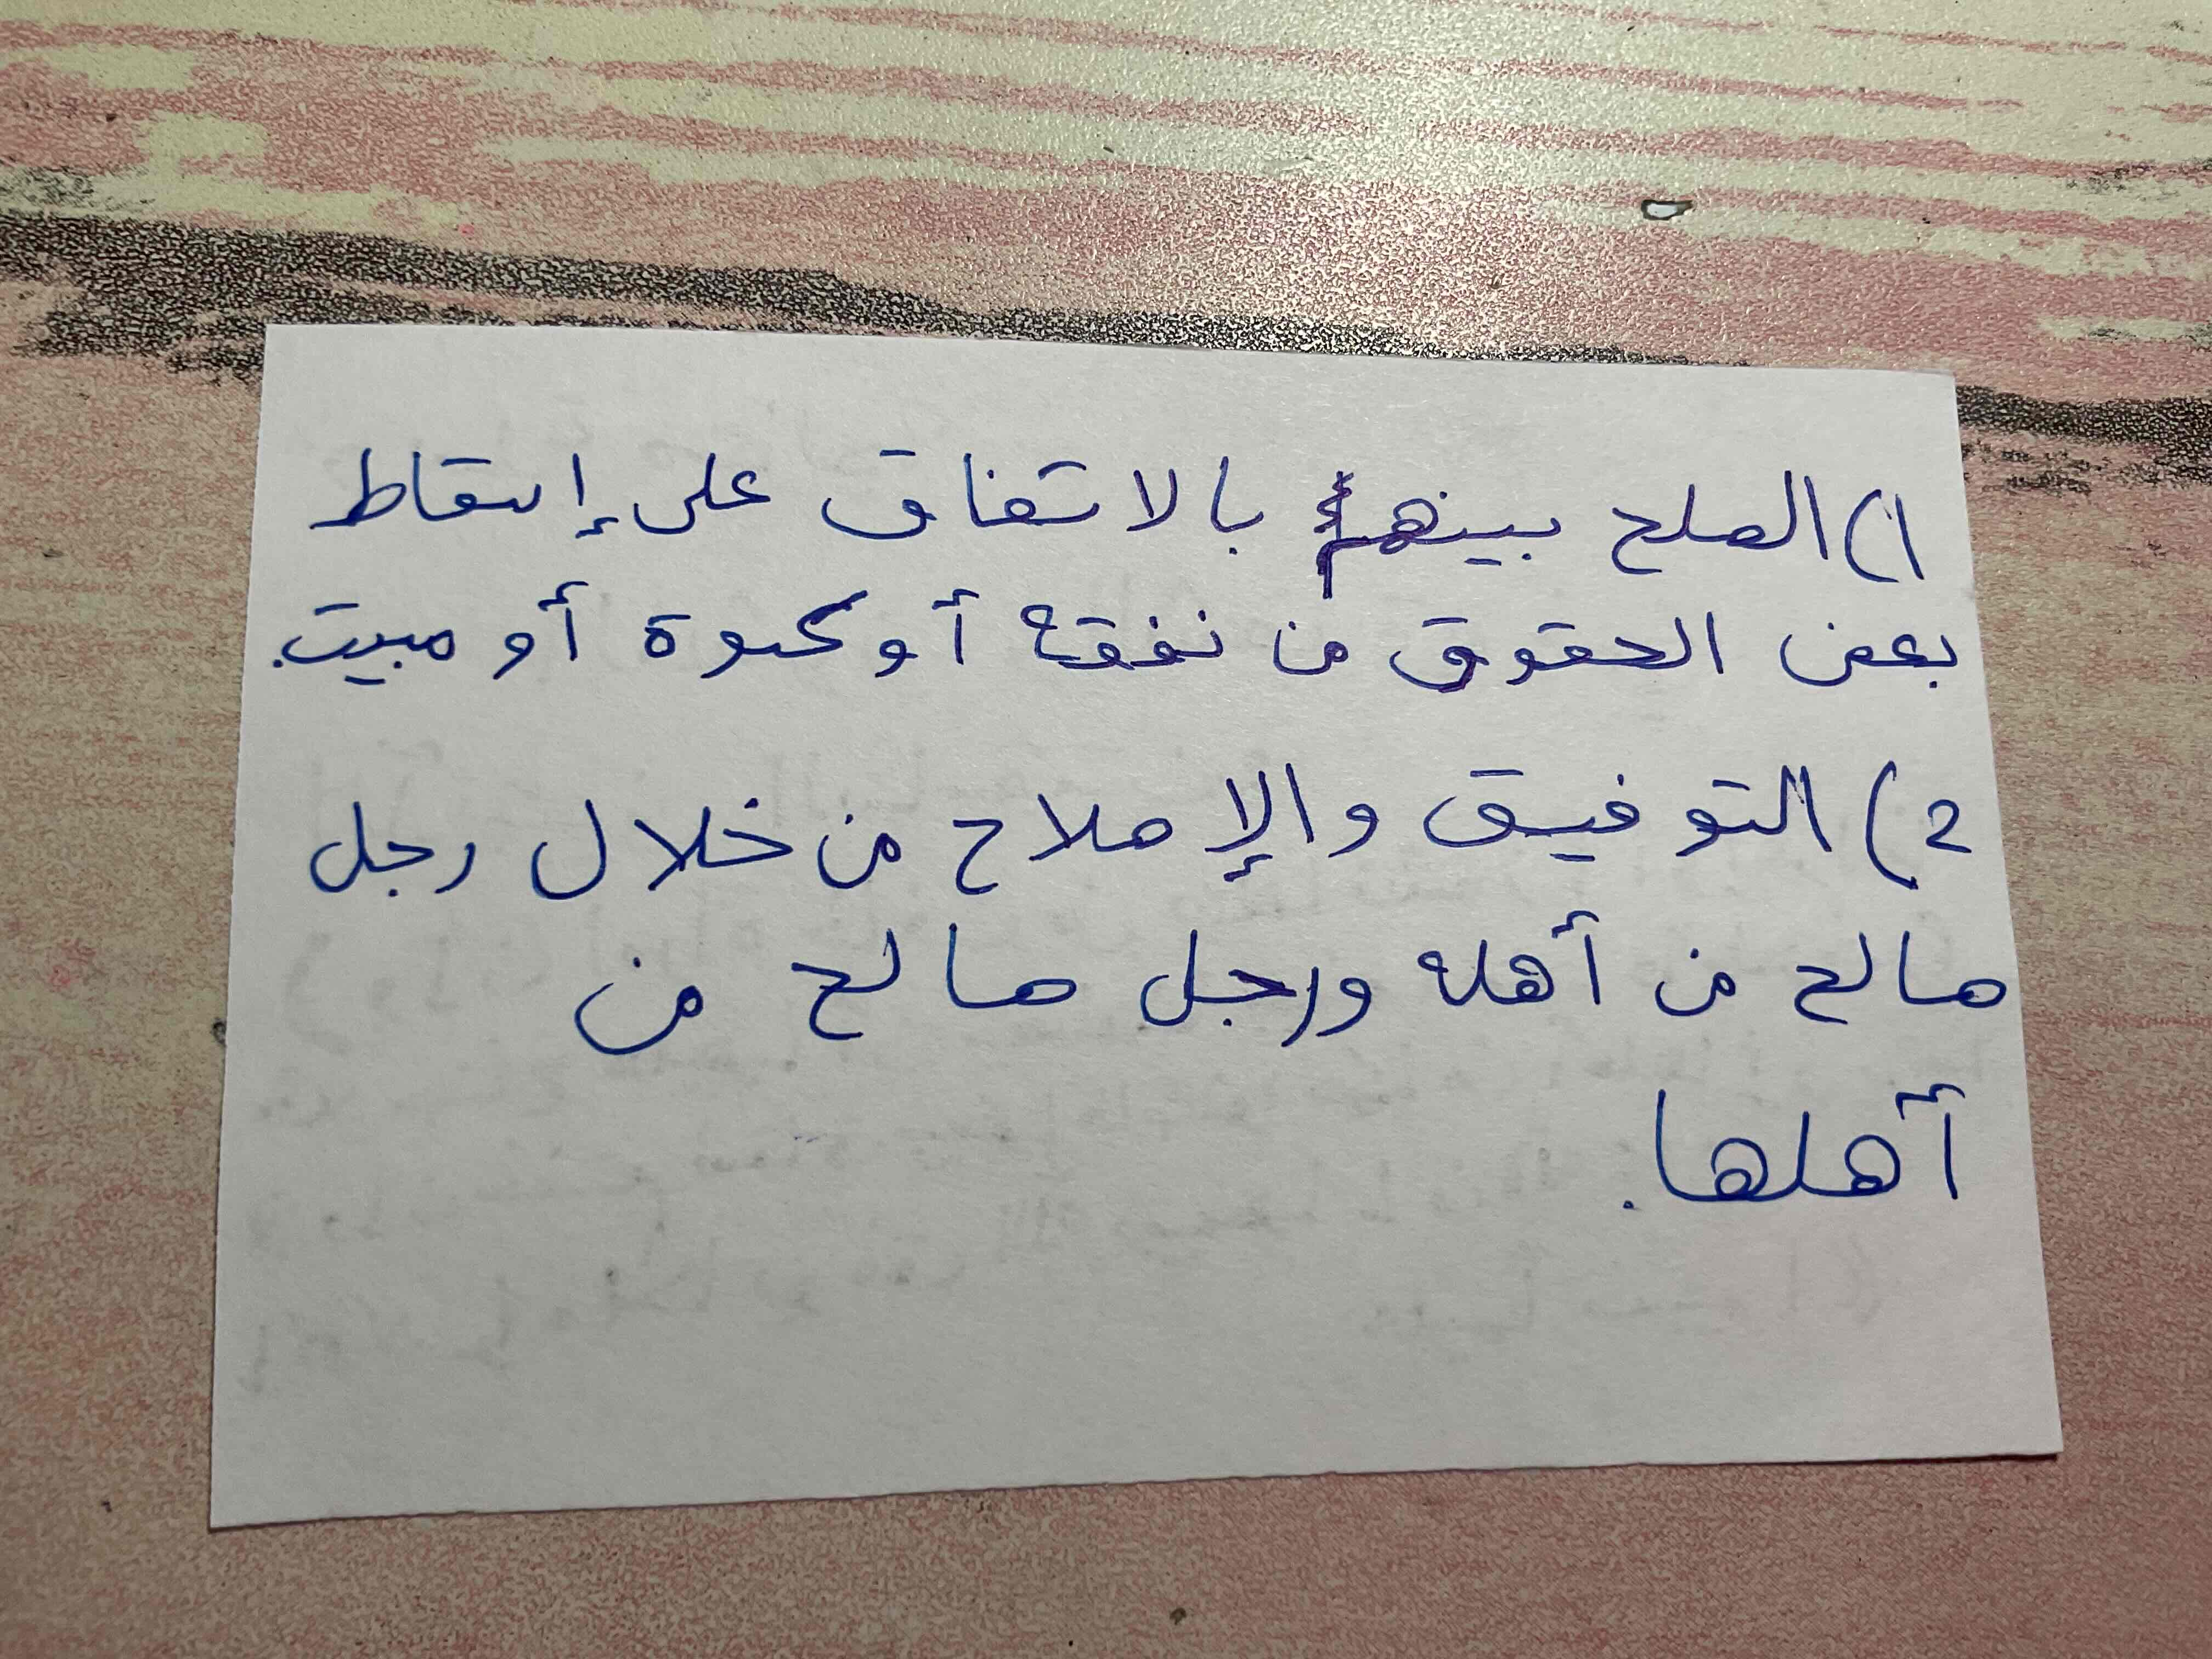 1) الصلح بينهم بالاتفاق على إسقاط
بعض الحقوق من نفقة أو كسوة أو مبيت.
2) التوفيق والإصلاح من خلال رجل
صالح من أهله ورجل صالح من
أهلها.